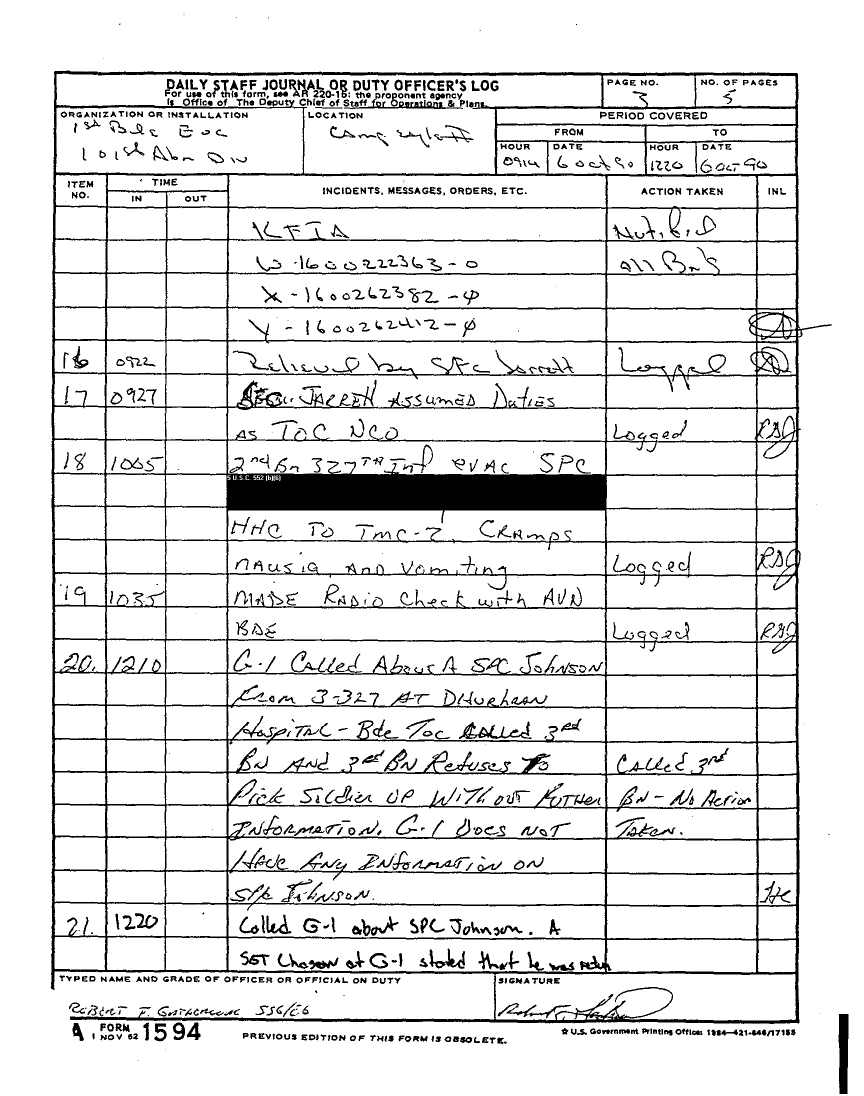 DAILY STAFF JOURNAL OR DUTY OFFICER'S LOG
For use of this form, see AR 220-15; the proponent agency
is Office of The Deputy Chief of Staff for Operations & Plans.
PAGE NO.
3
NO. OF PAGES
5
ORGANIZATION OR INSTALLATION
1st Bde
101st Abn Div
LOCATION
Camp
PERIOD COVERED
FROM
TO
HOUR
0914
DATE
6 Oct 90
HOUR
1220
DATE
6 Oct 90
ITEM NO.
TIME
IN
OUT
INCIDENTS, MESSAGES, ORDERS, ETC.
ACTION TAKEN
INL
KFIA Notified
W-1600222363-0 all Bn's
X-1600262382-φ
Y-1600262412-φ
16 0922 Relieved by SFC Jarrett Logged
17 0927 JARRETT ASSUMED DUTIES
AS TOC NCO Logged RDJ
18 1005 2nd Bn 327TH Inf EVAC SPC
5 U.S.C. 552 (b)(6)
HHC TO TMC-2, CRAMPS
NAUSIA, AND VOMITING Logged RDJ
19 1035 MADE RADIO Check with AVN
BDE Logged RDJ
20. 1210 G-1 CALLED ABOUT A SPC JOHNSON
FROM 3-327 AT DHURHRAN
HOSPITAL - Bde TOC CALLED 3rd
BN AND 3rd BN REFUSES TO CALLED 3rd
PICK SOLDIER UP WITHOUT FUTHER BN - NO ACTION
INFORMATION. G-1 DOES NOT TAKEN.
HAVE ANY INFORMATION ON
SPC JOHNSON.
21. 1220 Called G-1 about SPC Johnson. A
SGT at G-1 stated that he was return
TYPED NAME AND GRADE OF OFFICER OR OFFICIAL ON DUTY
ROBERT F. SSG/E6
SIGNATURE
A FORM 1 NOV 62 1594
PREVIOUS EDITION OF THIS FORM IS OBSOLETE.
☆ U.S. Government Printing Office: 1984-421-646/17155